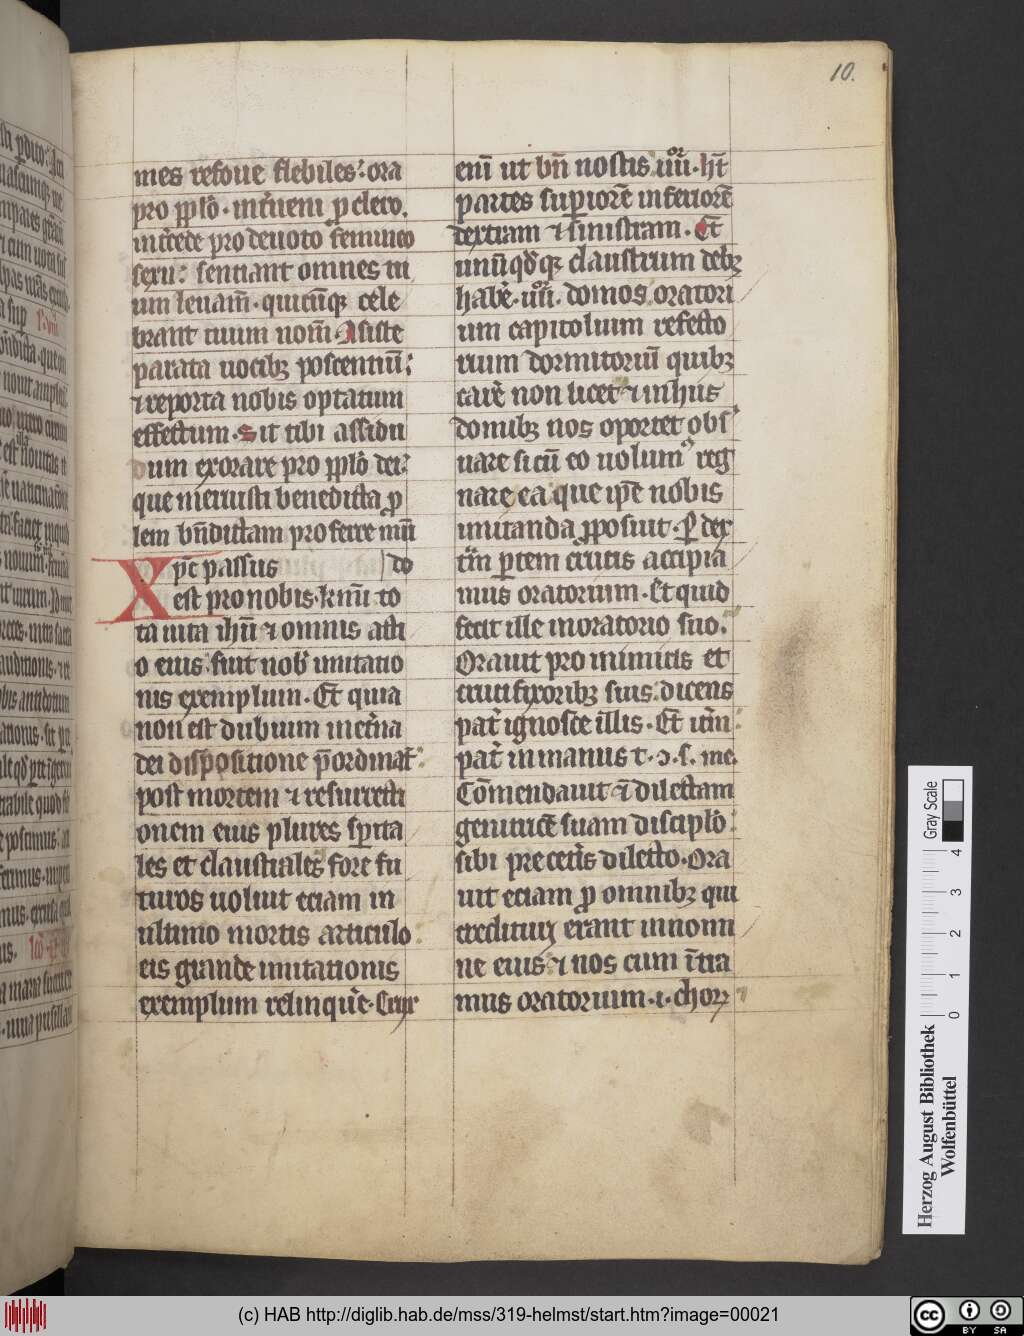 10.
mes refoue flebiles: ora
pro pplō. int̾ueni p clero.
int̾cede pro deuoto femineo
sexu: sentiant omnes tu
um leuam̄. quicūq; cele
brant tuum nom̄. Assiste
parata uocib; poscentiū:
⁊ reporta nobis optatum
effectum. Sit tibi assidu
dum exorare pro pplō dei:
que meruisti benedicta p
lem bn̄dictam proferre mūdo
Xpc̄ passus
est pro nobis. kn̄ū to
ta uita ihū ⁊ omnis acti
o eius fuit nob̾ imitatio
nis exemplum. Et quia
non est dubium in et̾na
dei dispositione p̄ordinat̾
post mortem ⁊ resurrecti
onem eius plures sp̄rita
les et claustrales fore fu
turos uoluit eciam in
ultimo mortis articulo
eis grande imitationis
exemplum relinqu̾e. Crux
eni̅ ut bn̄ nostis .iiii͛. hn̄t
partes superiorē inferiorē
dextram ⁊ sinistram. Et
unūqd̾q; claustrum deb;
hab̾e .iiii͛. domos oratori
um capitolium refecto
rium dormitoriū quib;
car̾e non licet ⁊ in hiis
domib; nos oportet obs̾
uare si cū eo uolum᷒ reg
nare ea que ip̄e nobis
imitanda pposuit. P̱ dex
tr̄m p̱tem crucis accipia
mus oratorium. Et quid
fecit ille in oratorio suo.
Orauit pro inimicis et
crucifixorib; suis dicens
pat̾ ignosce illis. Et it̾m
pat̾ in manus t. ↄ. s. me.
Cōmendauit ⁊ dilectam
genitricē suam discipłō
sibi pre cet̾is dilecto. Ora
uit eciam p omnib; qui
credituri erant in nomi
ne eius ⁊ nos cum īt̾ra
mus oratorium .i. chorꝝ
Herzog August Bibliothek
Wolfenbüttel
Gray Scale
0 1 2 3 4
(c) HAB http://diglib.hab.de/mss/319-helmst/start.htm?image=00021
cc BY SA